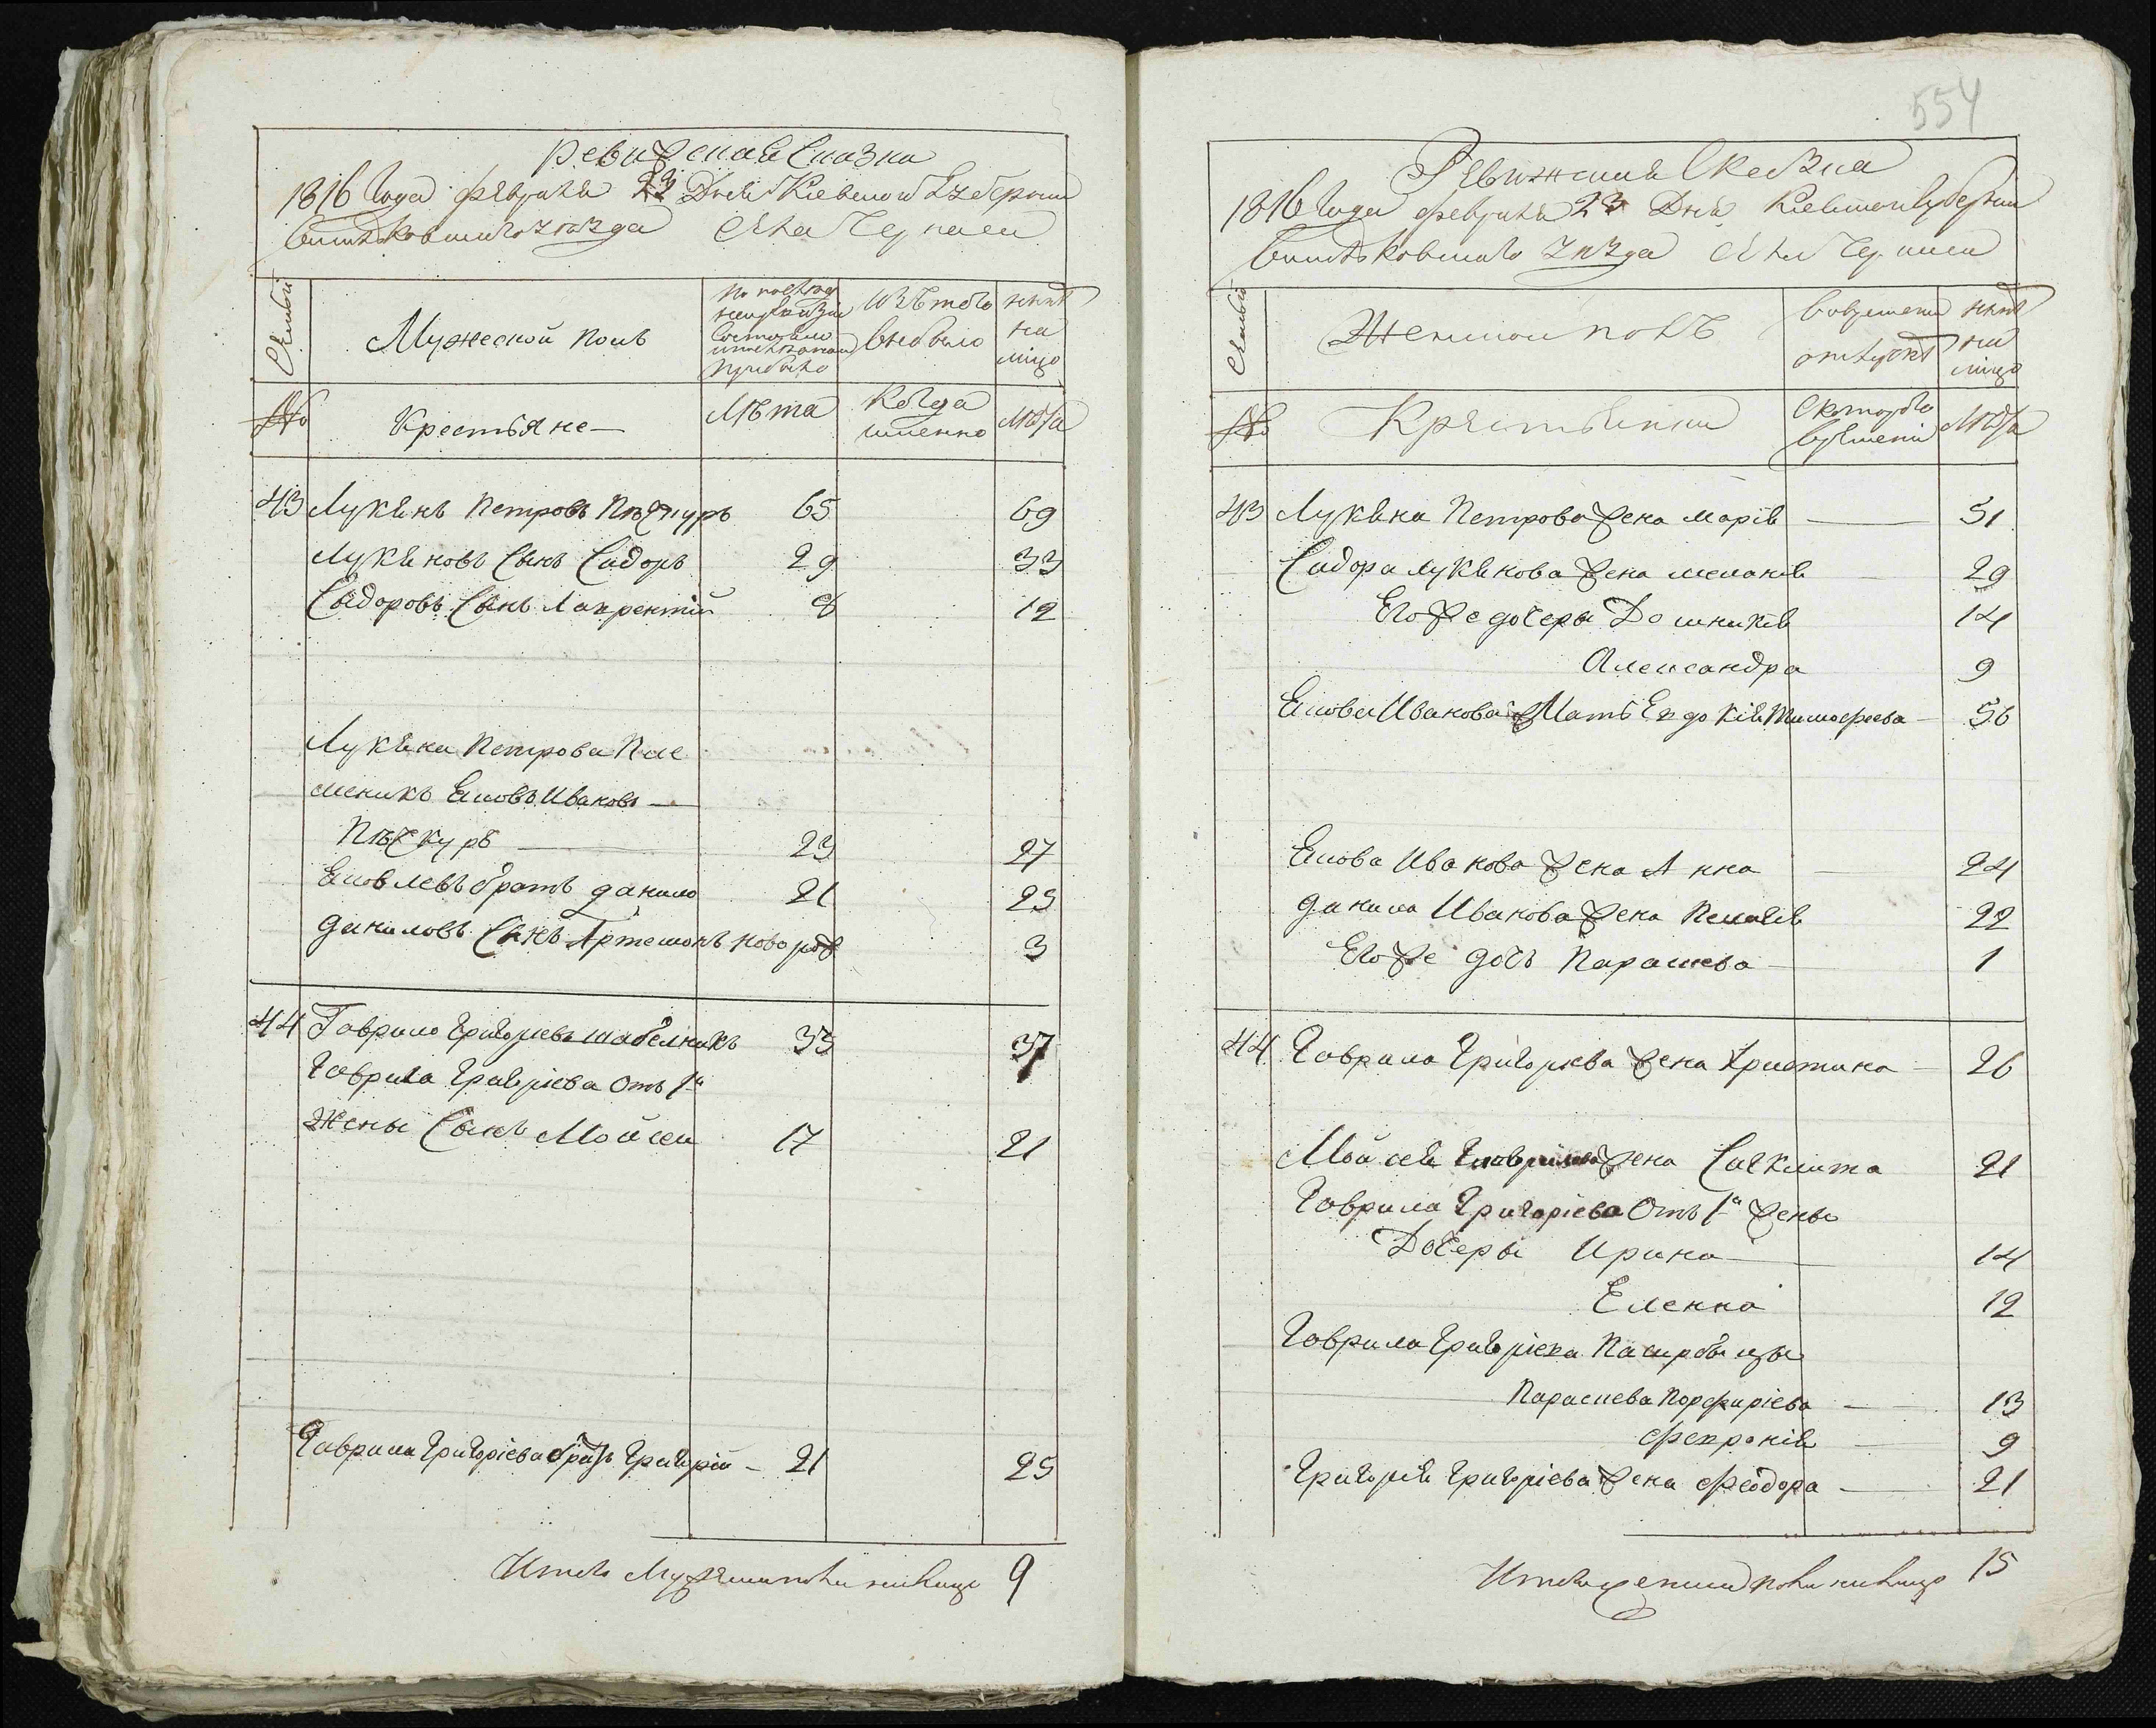 Ревизская Сказка
1816 Года февраля 22 Дня Киевской Губернии
Васильковскаго уезда Села Черкасъ
Семьи
Мужеской полъ
По последней ревизіи состояло и после того прибыло
Изъ того выбыло
ныне на лицо
№
Крестьяне
Лѣта
Когда именно
Лѣта
43 Лукянъ Петровъ Пѣскуръ 65 69
Лукяновъ Сынъ Сидоръ 29 33
Сидоровъ Сынъ Лаврентій 8 12
Лукяна Петрова Пле
меникъ Ековъ Ивановъ
Пѣскуръ 23 27
Ековлевъ братъ данило 21 25
даниловъ Сынъ Артемонъ новорож 3
44 Гаврило Григорьевъ шабелникъ 33 37
Гаврила Григоріева Отъ 1й
Жены Сынъ Мойсей 17 21
Гаврила Григоріева братъ Григорій 21 25
Итого Мужеска пола налицо 9
554
Ревижская Сказка
1816 Года февраля 23 Дня Киевской Губернии
Васильковскаго уезда Села Черкасъ
Семьи
Женской полъ
Во временной отлучкѣ
ныне на лицо
№
Крестьянки
С котораго времени
Лѣта
43 Лукяна Петрова жена марія 51
Сидора лукянова жена меланія 29
Его же дочеры Домникія 14
Александра 9
Екова Иванова Мать Евдокія Тимофеева 56
Екова Иванова жена Анна 24
данила Иванова жена Пелагія 22
Его же дочь Параскева 1
44 Гаврила Григорьева жена Христина 26
Мойсея Гаврилова жена Саклита 21
Гаврила Григоріева Отъ 1й жены
Дочеры Ирина 14
Еленна 12
Гаврила Григоріева Пасирбицы
Параскева Порфиріева 13
Февронія 9
Григорія Григоріева жена Феодора 21
Итого женска пола налицо 15